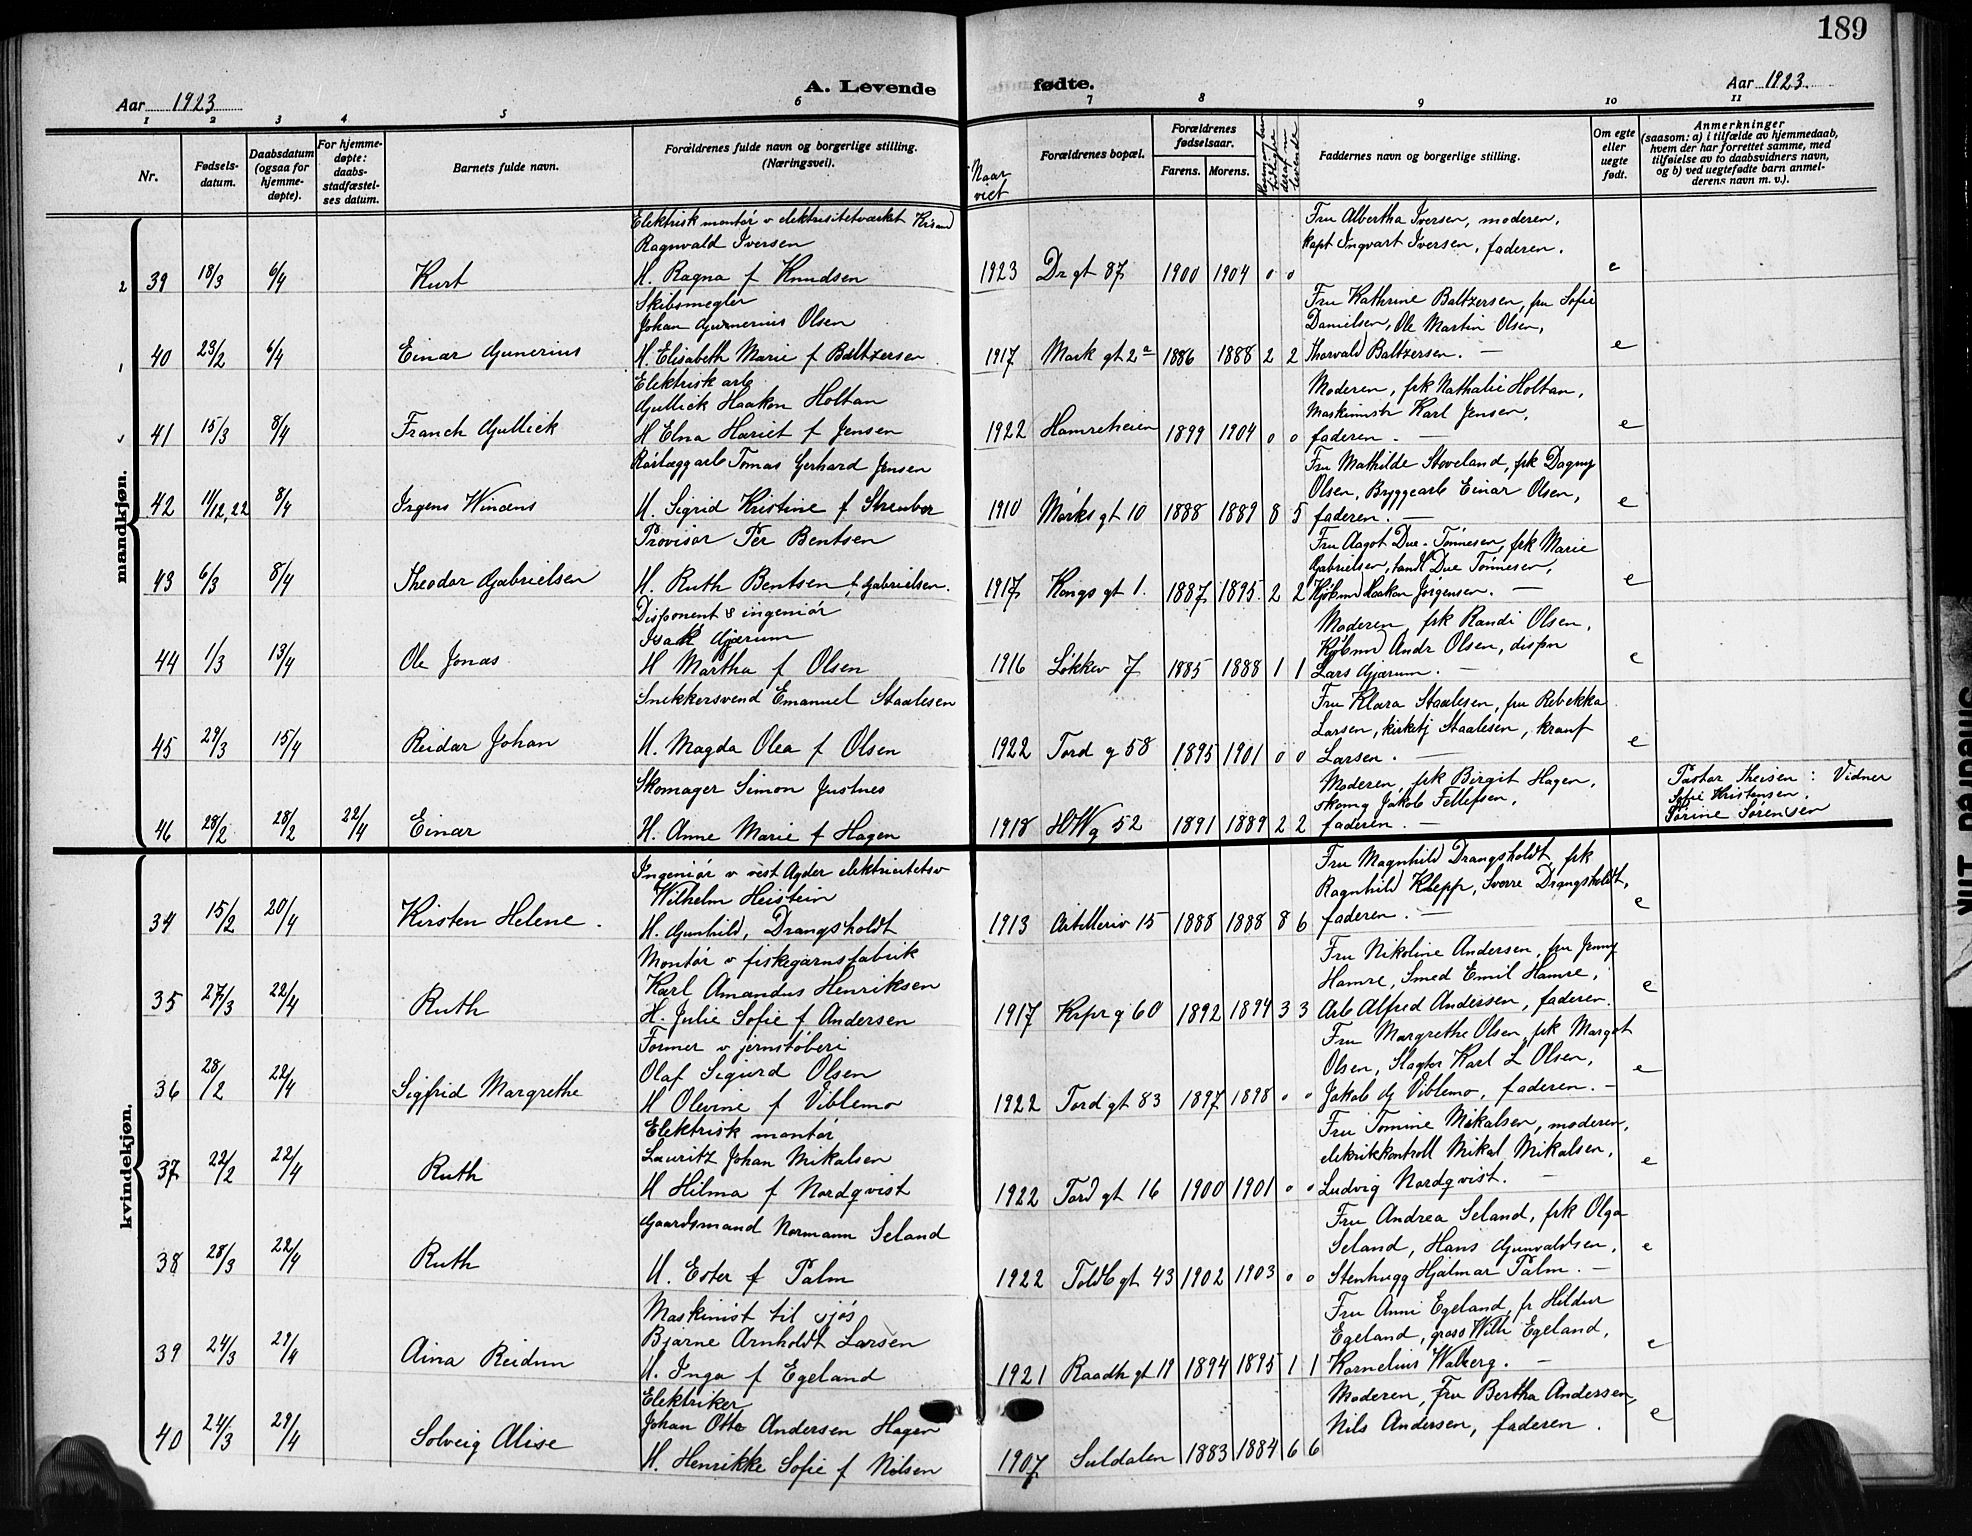 189
A. Levende fødte.
Aar 1923
Aar 1923.
1 2 3 4 5 6 7 8 9 10 11
Nr.
Fødsels-
datum.
Daabsdatum
(ogsaa for
hjemme-
døpte).
For hjemme-
døpte:
daabs-
stadfæstel-
ses datum.
Barnets fulde navn.
Forældrenes fulde navn og borgerlige stilling.
(Næringsvei).
Naar
viet
Forældrenes bopæl.
Forældrenes
fødselsaar.
Farens. Morens.
Faddernes navn og borgerlige stilling.
Om egte
eller
uegte
født.
Anmerkninger
(saasom: a) i tilfælde av hjemmedaab,
hvem der har forrettet samme, med
tilføielse av to daabsvidners navn,
og b) ved uegtefødte barn anmel-
derens navn m. v.).
mandkjøn.
Elektrisk montør v elektrisitetværket Krsand
Ragnvald Iversen
2 39 18/3 6/4 Kurt H. Ragna f Knudsen 1923 Dr gt 87 1900 1904 0 0 e
Fru Albertha Iversen, moderen,
kapt Ingvart Iversen, faderen.
Skibsmegler
Johan Gunerius Olsen
1 40 23/2 6/4 Einar Gunerius H. Elisabeth Marie f Baltzersen 1917 Mark gt 2a 1886 1888 2 2 e
Fru Kathrine Baltzersen, fru Sofie
Danielsen, Ole Martin Olsen,
Thorvald Baltzersen. —
Elektrisk arb
Gullick Haakon Holtan
41 15/3 8/4 Franck Gullick H Elna Hariet f Jensen 1922 Hamreheien 1899 1904 0 0 e
Moderen, frk Nathalie Holtan,
Maskinistr Karl Jensen,
faderen. —
Rørlæggarb Tomas Gerhard Jensen
42 11/12,22 8/4 Irgens Windens H. Sigrid Kristine f Strenbor 1910 Marks gt 10 1888 1889 8 5 e
Fru Mathilde Stoveland, frk Dagny
Olsen, Bryggearb Einar Olsen,
faderen. —
Provisor Per Bentsen
43 6/3 8/4 Theodor Gabrielsen H. Ruth Bentsen f Gabrielsen. 1917 Kongs gt 1. 1887 1895 2 2 e
Fru Aagot Due-Tønnesen, frk Marie
Gabrielsen, tandl Due Tønnesen,
Kjøbmd Haakon Jørgensen. —
Disponent & ingeniør
Isak Gjærum
44 1/3 13/4 Ole Jonas H Martha f Olsen 1916 Løkkev 7 1885 1888 1 1 e
Moderen, frk Randi Olsen,
Kjøbmd Andr Olsen, dispn
Lars Gjærum. —
Snekkersvend Emanuel Staalesen
45 29/3 15/4 Reidar Johan H. Magda Olea f Olsen 1922 Tord g 58 1895 1901 0 0 e
Fru Klara Staalesen, fru Rebekka
Larsen, kirketj Staalesen, kranf
Larsen. —
Skomager Simon Justnes
46 28/2 28/2 22/4 Einar H. Anne Marie f Hagen 1918 HWg 52 1891 1889 2 2
Moderen, frk Birgit Hagen,
skomg Jakob Fellefsen,
faderen. —
Pastor Theisen: Vidner
Sofie Kristensen,
Sørine Sørensen
kvindekjøn.
Ingeniør v vest Agder elektricitetsv
Wilhelm Heistein
34 15/2 20/4 Kirsten Helene. H. Gunhild, Drangsholdt 1913 Artilleriv 15 1888 1888 8 6 e
Fru Magnhild Drangsholdt, frk
Ragnhild Klepp, Sverre Drangsholdt,
faderen. —
Montør v fiskegarnsfabrik
Karl Amandus Henriksen
35 27/3 22/4 Ruth H. Julie Sofie f Andersen 1917 Krpr g 60 1892 1894 3 3 e
Fru Nikoline Andersen, fru Jenny
Hamre, Smed Emil Hamre,
Arb Alfred Andersen, faderen.
Former v jernstøberi
Olaf Sigurd Olsen
36 28/2 22/4 Sigfrid Margrethe H Olevine f Viblemo 1922 Tord gt 83 1897 1898 0 0 e
Fru Margrethe Olsen, frk Margot
Olsen, Slagter Karl L Olsen,
Jakob Gj Viblemo, faderen. —
Elektrisk montør
Lauritz Johan Mikalsen
37 22/2 22/4 Ruth H Hilma f Nordqvist 1922 Tord gt 16 1900 1901 0 0 e
Fru Tomine Mikalsen, moderen,
elektrikkontroll Mikal Mikalsen,
Ludvig Nordqvist. —
Gaardsmand Normann Seland
38 28/3 22/4 Ruth H. Ester f Palm 1922 Toldb gt 43 1902 1903 0 0 e
Fru Andrea Seland, frk Olga
Seland, Hans Gunvaldsen,
Stenhugg Hjalmar Palm. —
Maskinist til sjøs
Bjarne Arnholdt Larsen
39 24/3 29/4 Aina Reidun H. Inga f Egeland 1921 Raadh gt 19 1894 1895 1 1 e
Fru Anni Egeland, fr Heldur
Egeland, gross Wilh Egeland,
Kornelius Walberg. —
Elektriker
Johan Otto Andersen Hagen
40 24/3 29/4 Solveig Alise H. Henrikke Sofie f Nilsen 1907 Suldalen 1883 1884 6 6 e
Moderen, Fru Bertha Andersen,
Nils Andersen, faderen.